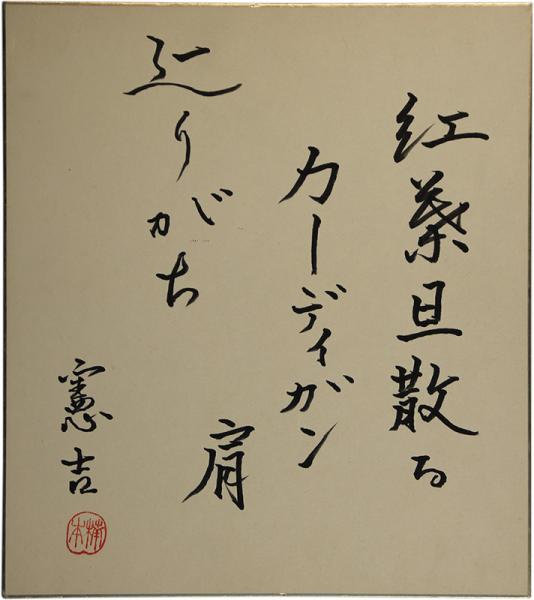 紅葉且散る
カーディガン
肩
辷りがち
憲吉
楠本